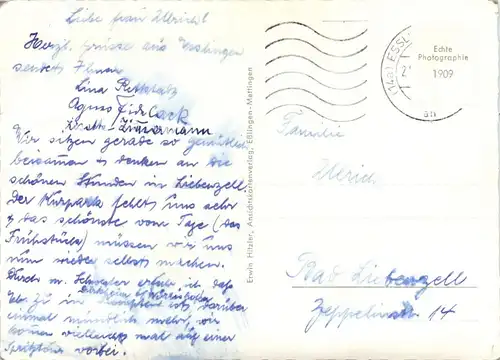 Liebe Frau Ullrich!
Herzl. Grüsse aus Esslingen
sendet Ihnen
Lina
Agnes
Wir sitzen gerade so gemütlich
beisammen u. denken an die
schönen Stunden in Liebenzell.
Der Kurpark fehlt uns sehr
u. das schönste vom Tage (das
Frühstück) müssen wir uns
nun wieder selbst machen.
Durch m. Schwester erfuhr ich, daß
darüber
einmal mündlich mehr, wir
kommen vielleicht mal auf einer
Spritztour vorbei.
Erwin Hilsler, Ansichtskartenverlag, Eßlingen-Mettingen
(14a) ESSL
Echte
Photographie
1909
Familie
Ullrich
Bad Liebenzell
Zeppelinstr. 14